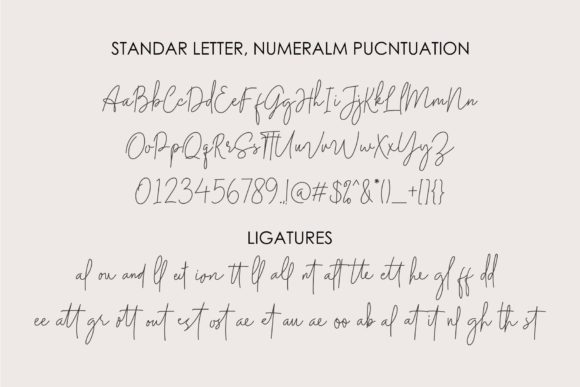 STANDAR LETTER, NUMERALM PUCNTUATION
AaBbCcDdEeFfGgHhIiJjKkLlMmNn
OoPpQqRrSsTtUuVvWwXxYyZz
0123456789.,!@#$%^&*()_+[]{}
LIGATURES
al ou and ll eit ion tt ll all nt att tte ett he gl ff dd
ee att gr ott out est ost ae et au ae oo ab al at it nl gh th st